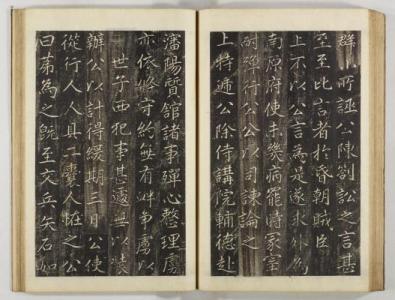 群 所誣公陳劄訟之言甚
至至此言者於昏朝賊臣
上不以公言為是遂求外為
南原府使未幾病罷時家室
耐殫行公以司諫論之
上特遞公除侍講院輔德赴
瀋陽質館諸事殫心整理虜
亦依條守約無有外事虜以
世子西犯事甚遽 以
辦公以計得緩期三日公使
從行人人具一囊人 之公
曰第為之旣至交兵矢石如